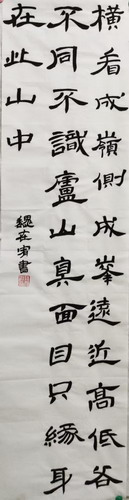 橫看成嶺側成峯遠近高低各
不同不識廬山真面目只緣身
在此山中
書